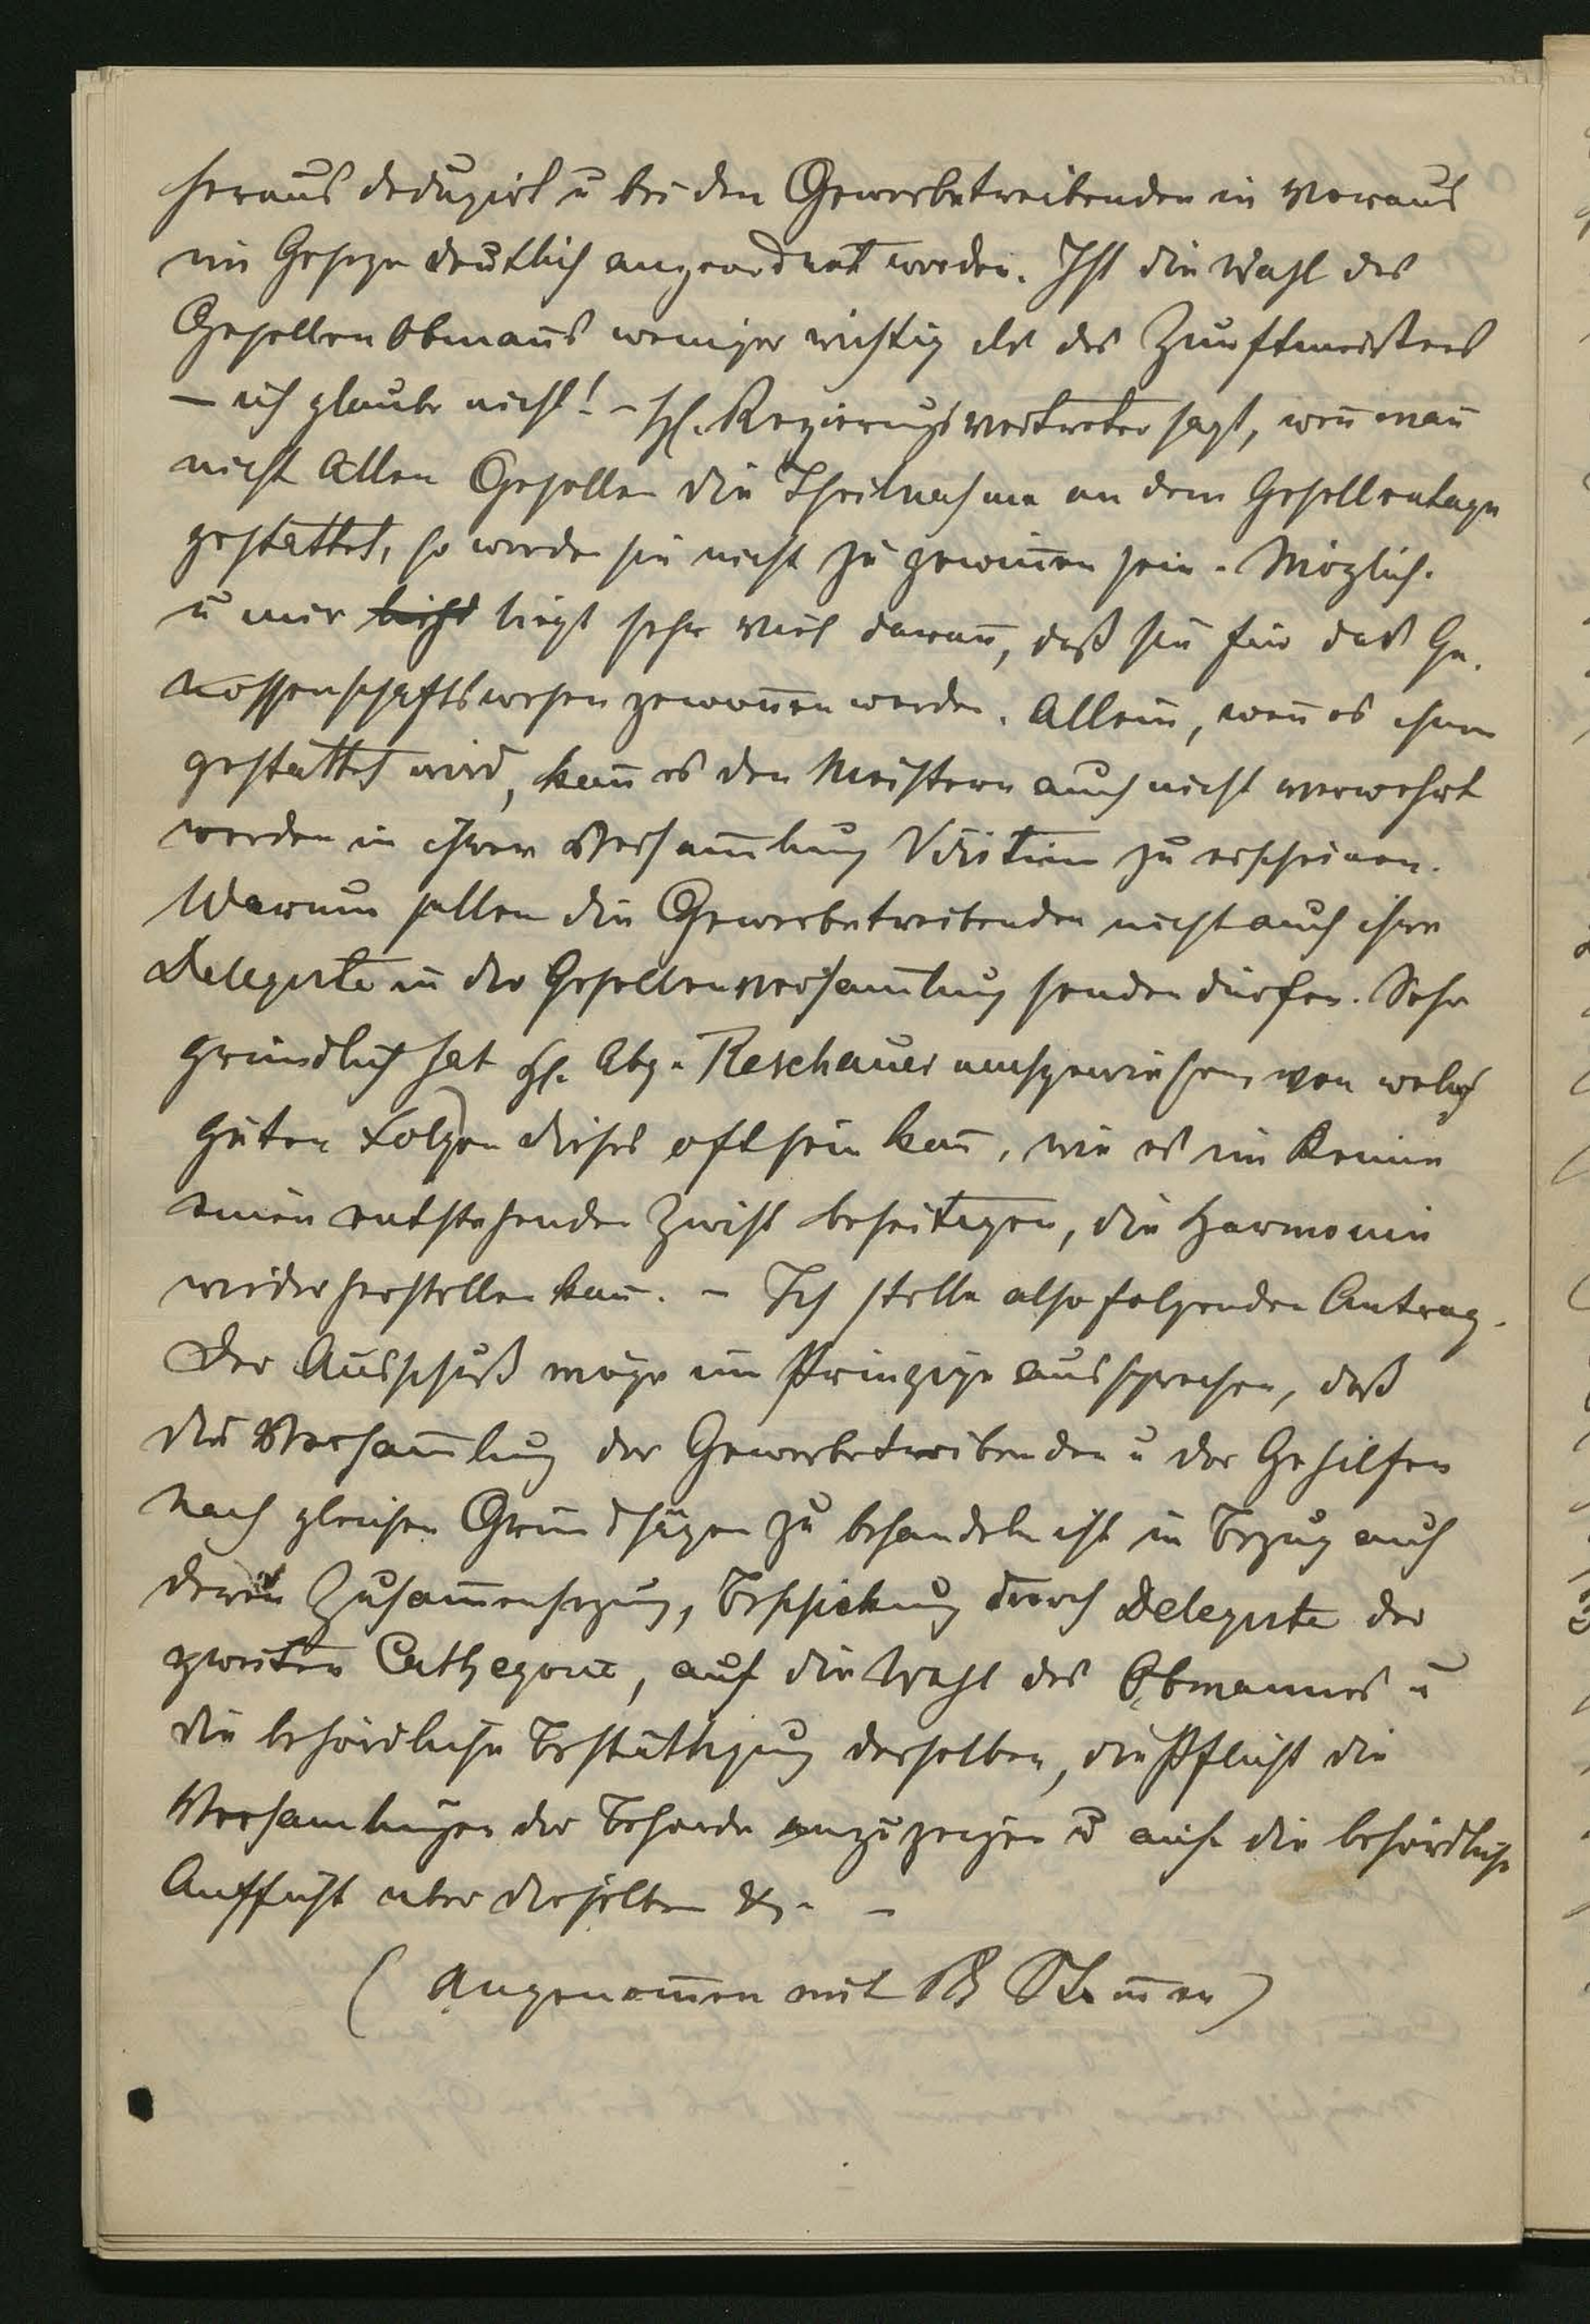 heraus deduzirt u bei den Gewerbetreibenden in Voraus
im Geseze deutlich angeordnet werden. Ist die Wahl des
Gesellenobmans weniger wichtig als des Zunftmeisters
— ich glaube nicht! – H. Regierungsvertreter sagt, wen man
nicht Allen Gesellen die Theilnahme an dem Gesellentage
gestattet, so werden sie nicht zu gewinen sein. Möglich.
u mir liegt sehr viel daran, daß sie für das Ge-
nossenschaftswesen gewonen werden. Allein, wen es ihnen
gestattet wird, kan es den Meistern auch nicht verwehrt
werden in ihrer Versamlung zu erscheinen.
Warum sollen die Gewerbetreibenden nicht auch ihre
Delegirte in der Gesellenversamlung senden dürfen. Sehr
gründlich hat H. Abg. Reschauer nachgewiesen, von welch
guten Folgen dieses oft sein kan, wie es im Keime
einen entstehenden Zwist beseitigen, die Harmonie
wiederherstellen kan. – Ich stelle also folgenden Antrag.
Der Ausschuß möge im Prinzipe aussprechen, daß
die Versamlung der Gewerbetreibenden u der Gehilfen
nach gleichen Grundsäzen zu behandeln ist in Bezug auf
deren Zusamensezung, Beschickung durch Delegirte der
zweiten Cathegorie, auf die Wahl des Obmannes u
die behördliche Bestättigung derselben, die Pflicht die
Versamlungen der Behörde anzuzeigen u auf die behördliche
Aufsicht über dieselben &. –
(Angenomen mit Stimen)